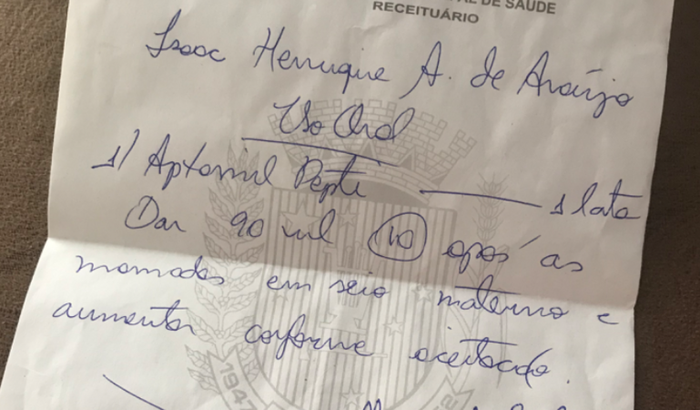 DE SAÚDE
RECEITUÁRIO
Isaac Henrique A. de Araújo
Uso Oral
1) Aptamil Pepti — 1 lata
Dar 90 ml (VO) após as
mamadas em seio materno e
aumentar conforme aceitação.
1947